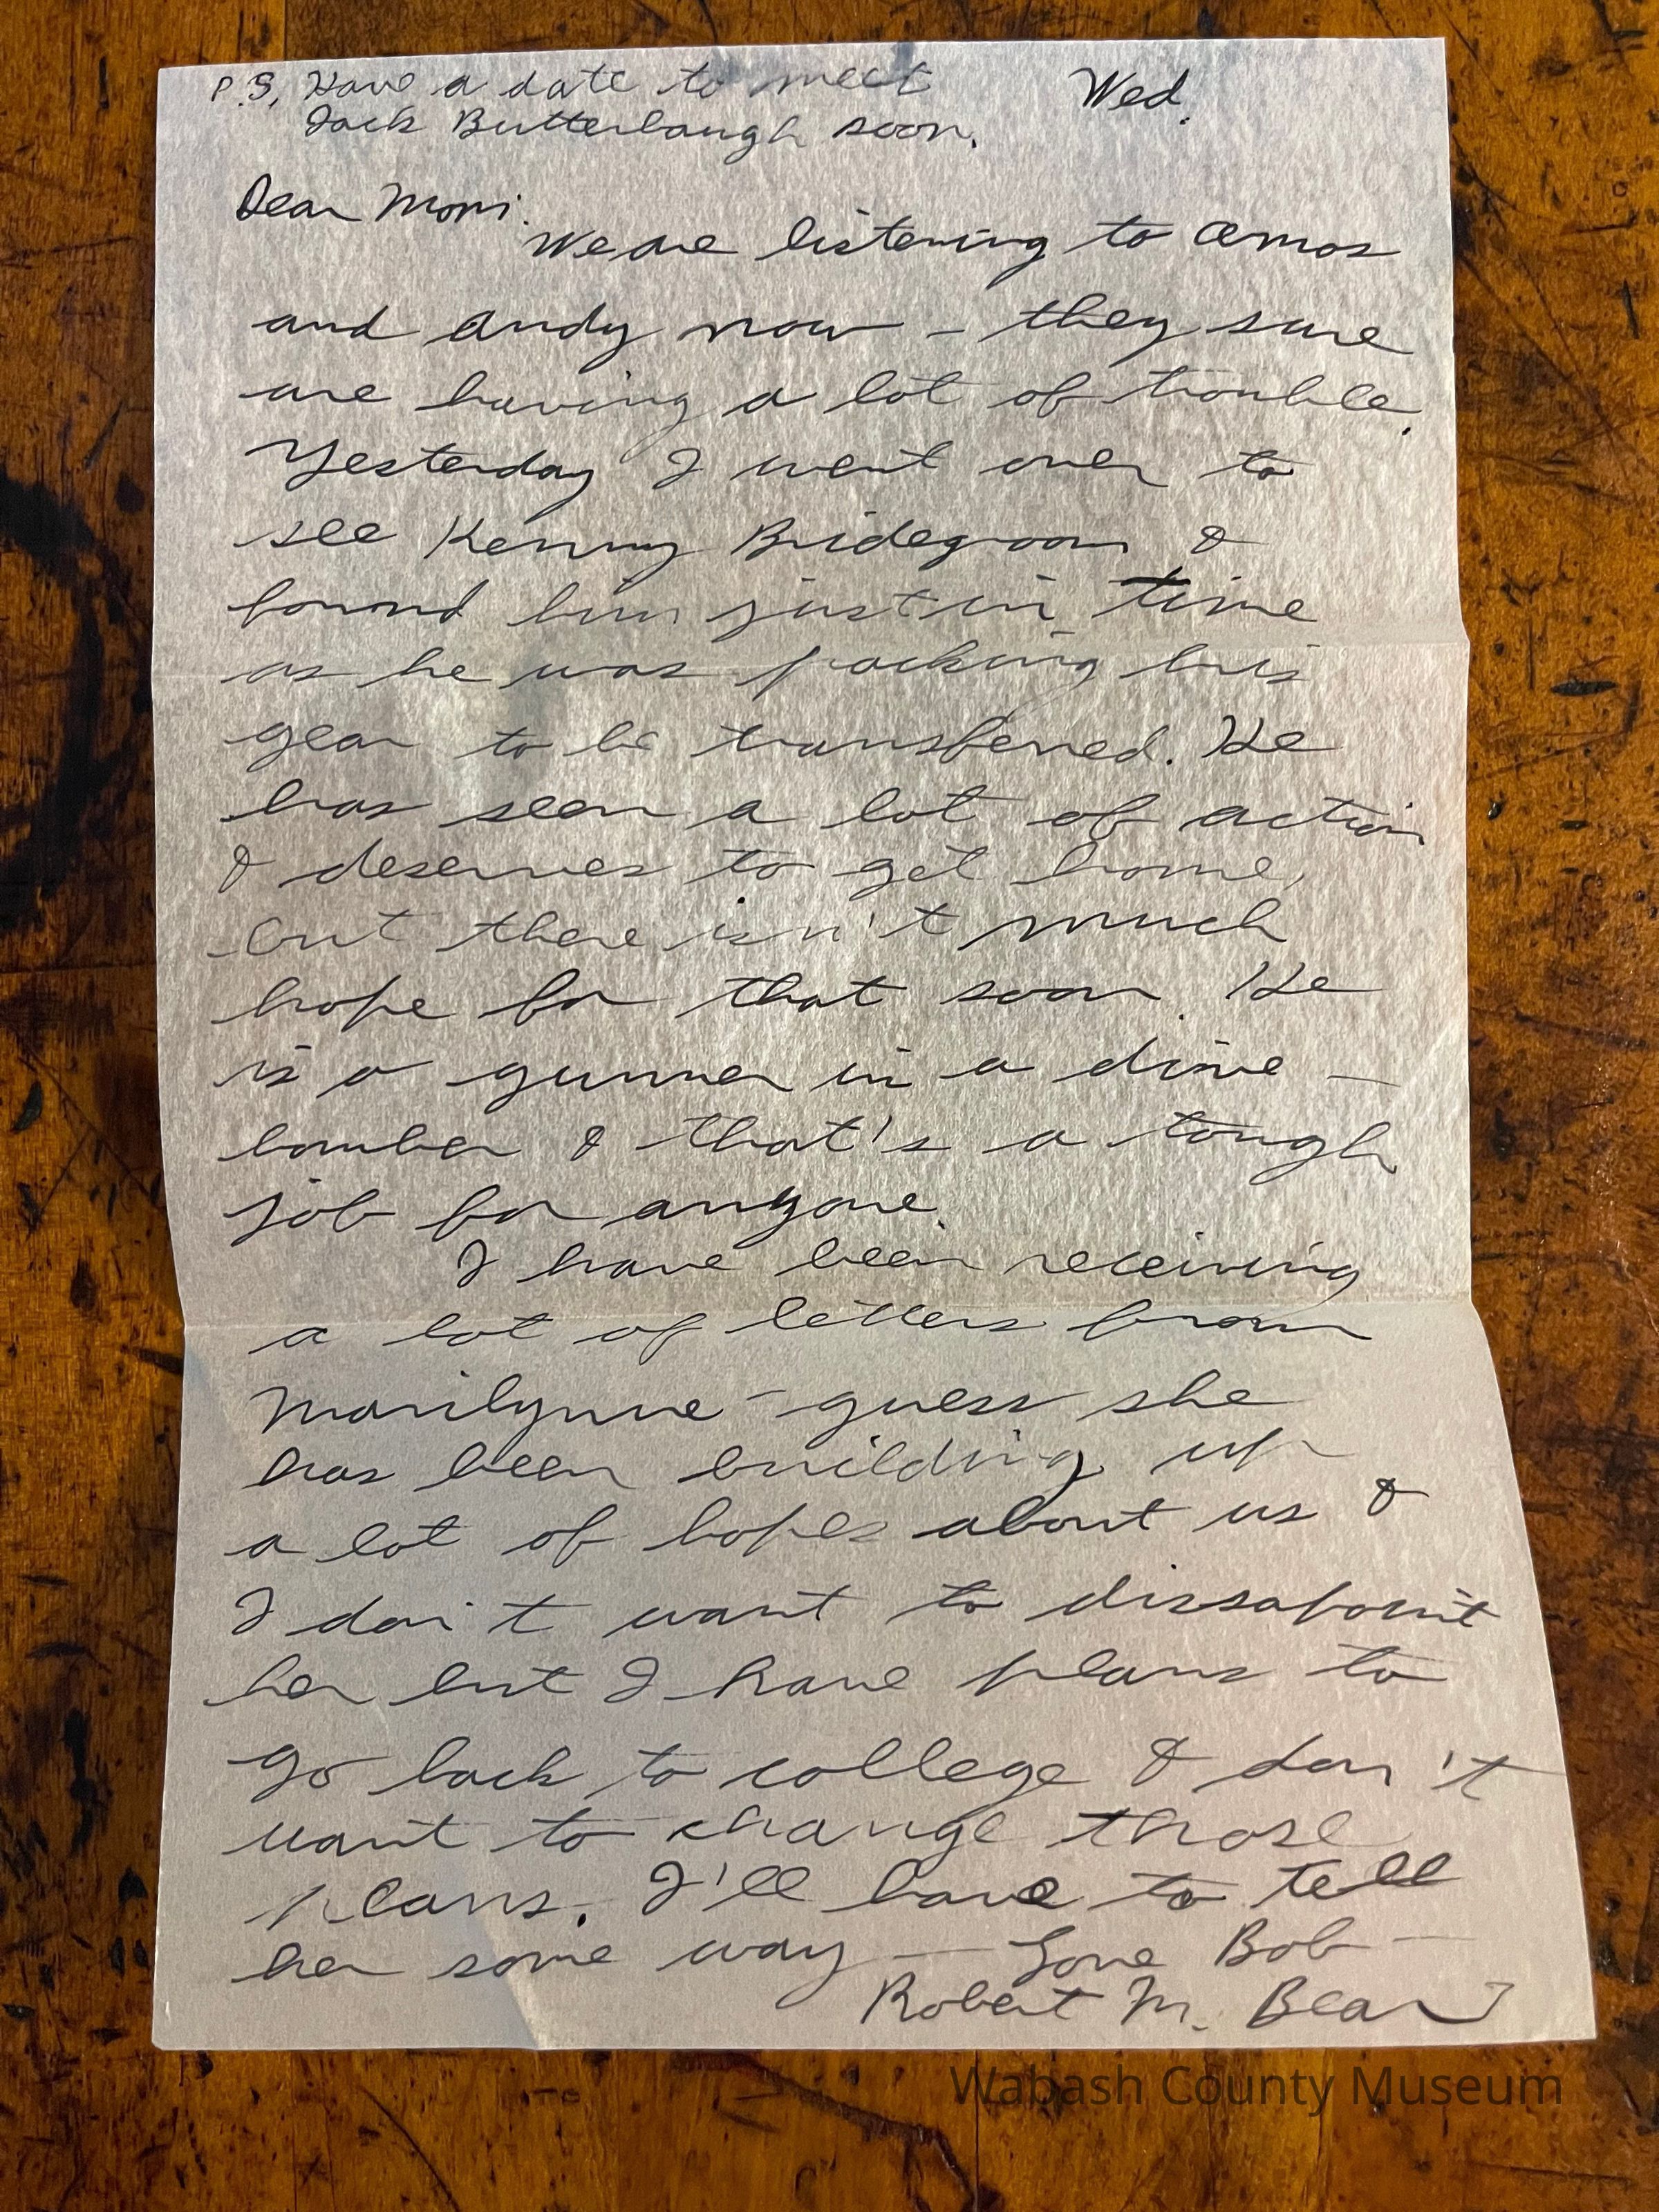 P.S. Have a date to meet
Jack Butterbaugh soon.
Wed.
Dear Mom:
We are listening to Amos
and Andy now – they sure
are having a lot of trouble.
Yesterday I went over to
see Kenny Bridegroom &
found him just in time
as he was packing his
gear to be transferred. He
has seen a lot of action
& deserves to get home,
but there isn't much
hope for that soon. He
is a gunner in a dive –
bomber & that's a tough
job for anyone.
I have been receiving
a lot of letters from
Marilynne – guess she
has been building up
a lot of hopes about us &
I don't want to dissapoint
her but I have plans to
go back to college & don't
want to change those
plans. I'll have to tell
her some way — Love Bob —
Robert M. Bear
Wabash County Museum